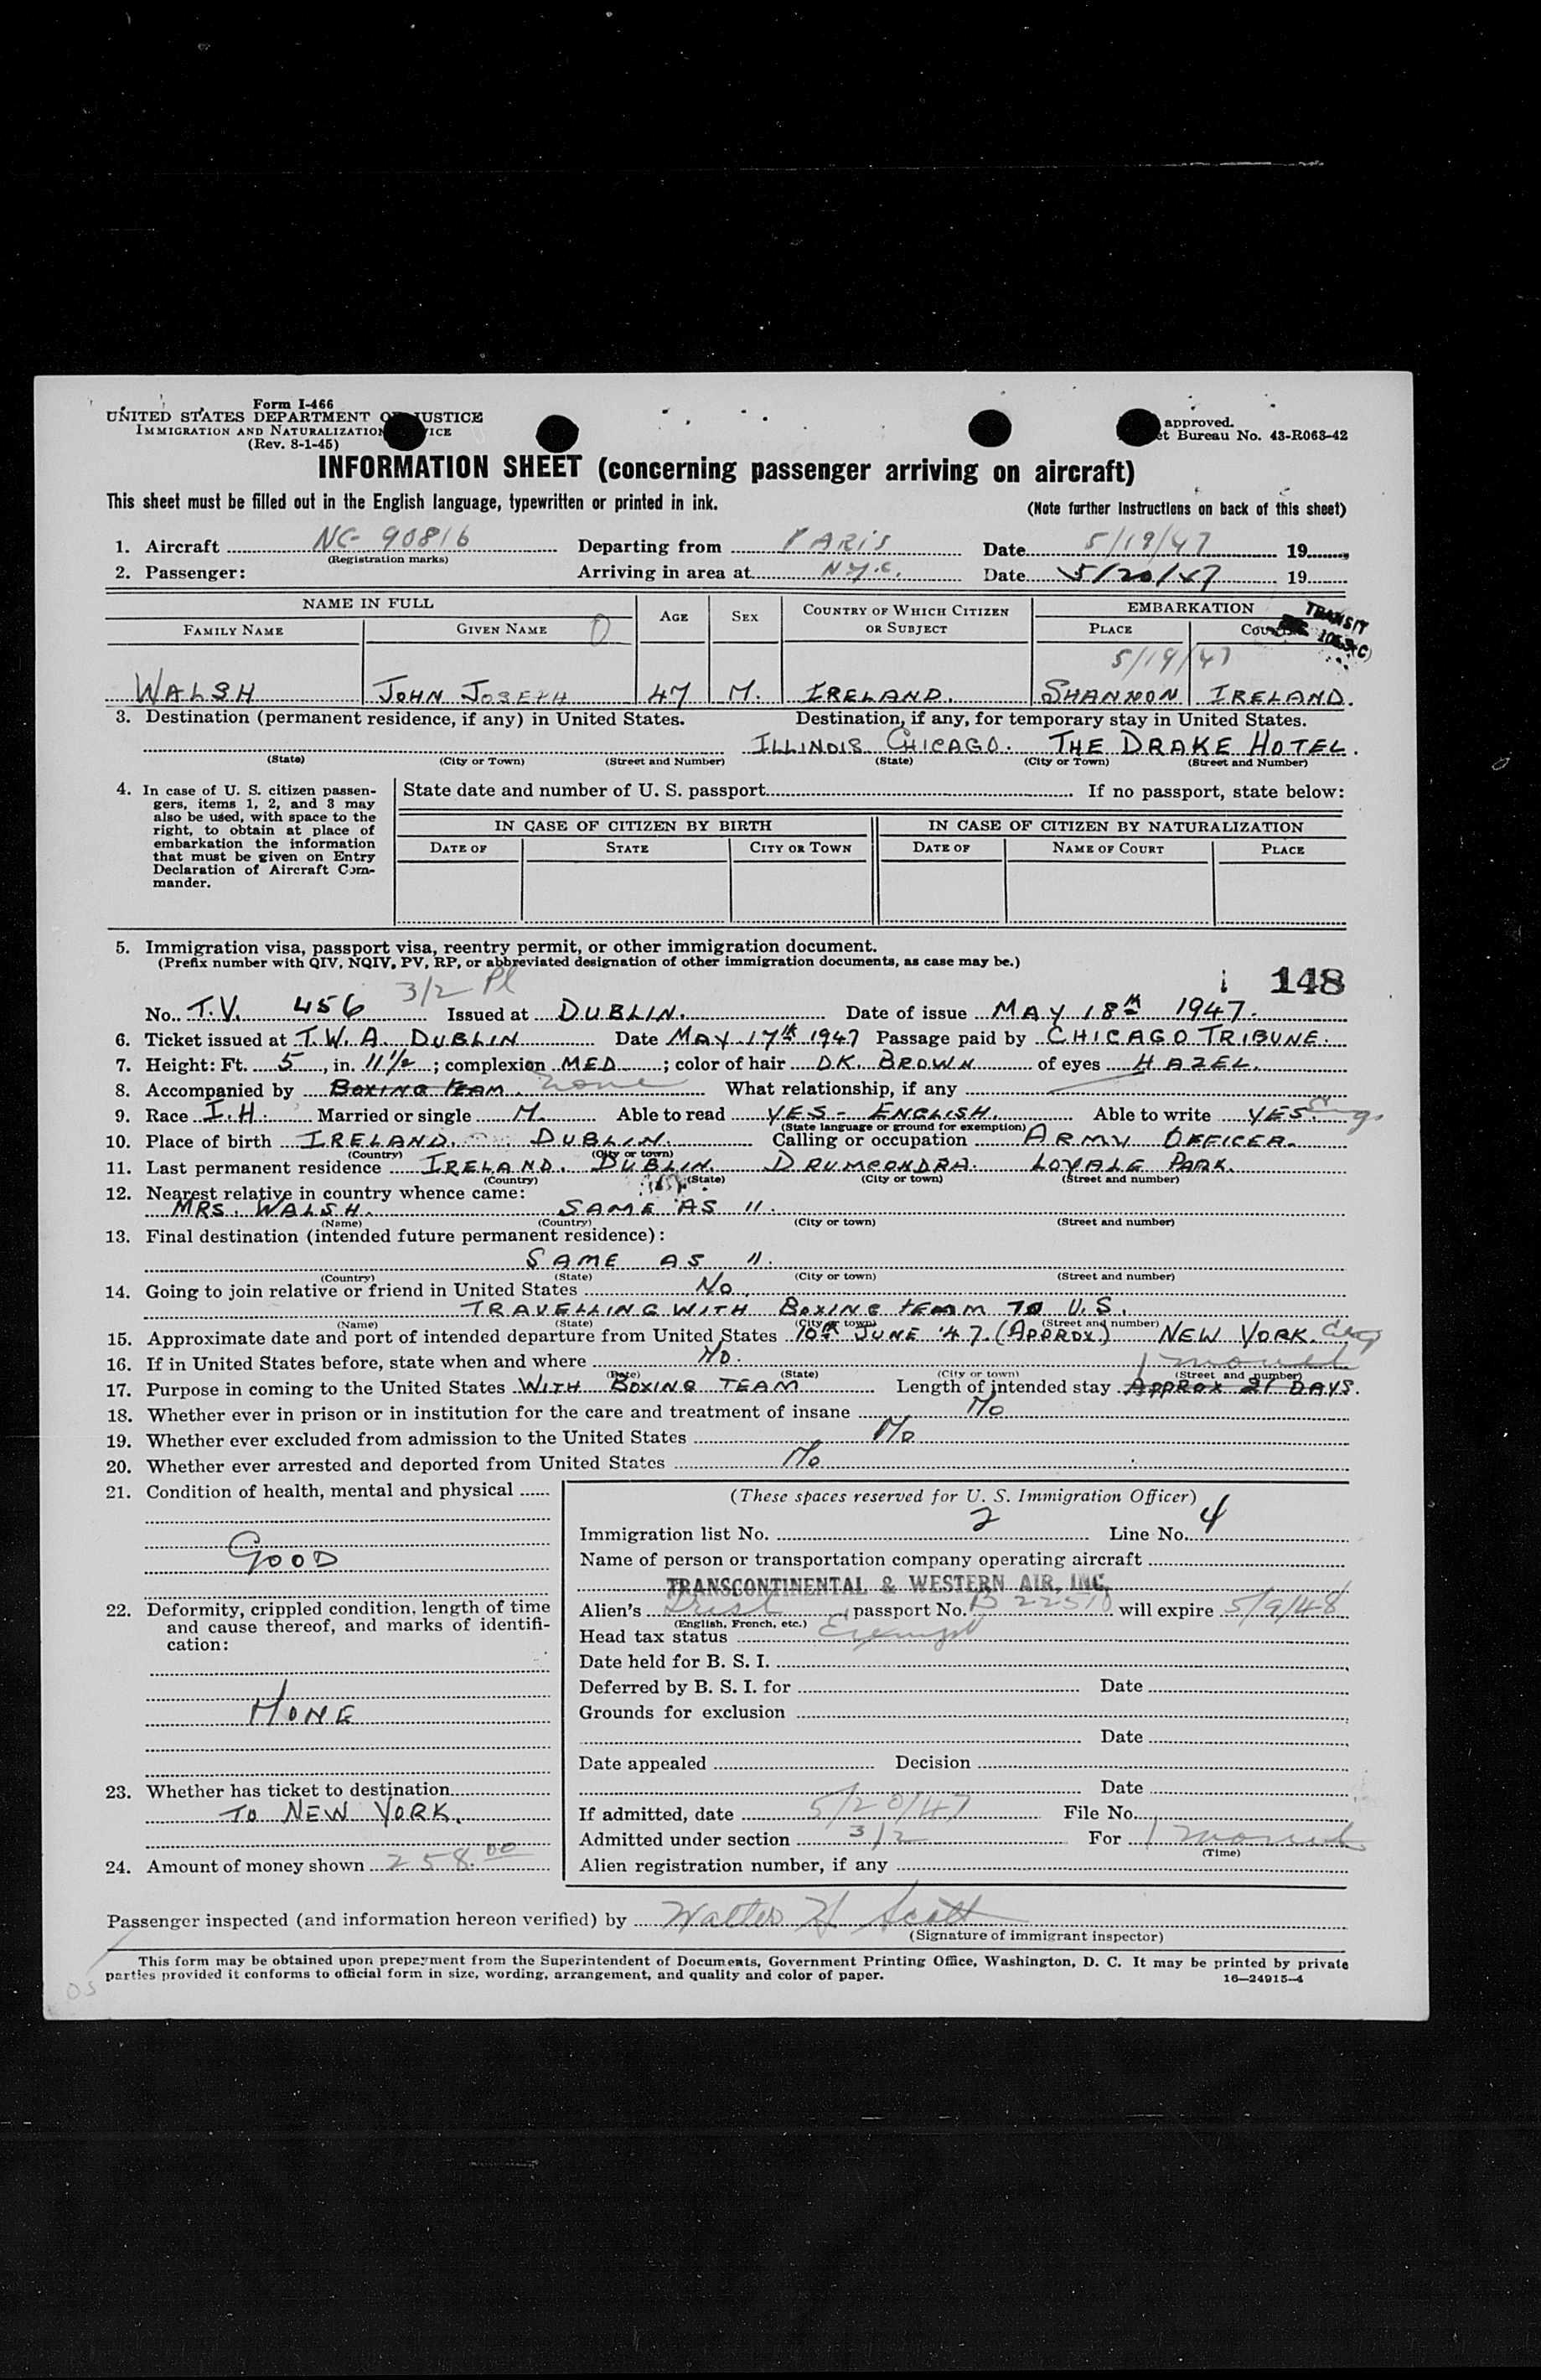 Form I-466
UNITED STATES DEPARTMENT OF JUSTICE
IMMIGRATION AND NATURALIZATION SERVICE
(Rev. 8-1-45)
approved.
et Bureau No. 43-R063-42
INFORMATION SHEET (concerning passenger arriving on aircraft)
This sheet must be filled out in the English language, typewritten or printed in ink.
(Note further instructions on back of this sheet)
1. Aircraft NC- 90816 Departing from PARIS Date 5/19/47 19
(Registration marks)
2. Passenger: Arriving in area at N.Y.C. Date 5/20/47 19
NAME IN FULL AGE SEX COUNTRY OF WHICH CITIZEN OR SUBJECT EMBARKATION
TRANSIT
FAMILY NAME GIVEN NAME 0 PLACE
5/19/47
WALSH JOHN JOSEPH 47 M. IRELAND. SHANNON IRELAND.
3. Destination (permanent residence, if any) in United States. Destination, if any, for temporary stay in United States.
ILLINOIS CHICAGO. THE DRAKE HOTEL.
(State) (City or Town) (Street and Number) (State) (City or Town) (Street and Number)
4. In case of U. S. citizen passen-
gers, items 1, 2, and 3 may
also be used, with space to the
right, to obtain at place of
embarkation the information
that must be given on Entry
Declaration of Aircraft Com-
mander.
State date and number of U. S. passport If no passport, state below:
IN CASE OF CITIZEN BY BIRTH IN CASE OF CITIZEN BY NATURALIZATION
DATE OF STATE CITY OR TOWN DATE OF NAME OF COURT PLACE
5. Immigration visa, passport visa, reentry permit, or other immigration document.
(Prefix number with QIV, NQIV, PV, RP, or abbreviated designation of other immigration documents, as case may be.)
3/2 Pl
148
No. T.V. 456 Issued at DUBLIN. Date of issue MAY 18th 1947.
6. Ticket issued at T.W.A. DUBLIN Date MAY 17th 1947 Passage paid by CHICAGO TRIBUNE.
7. Height: Ft. 5, in. 11 1/2; complexion MED; color of hair DK. BROWN of eyes HAZEL.
8. Accompanied by BOXING TEAM. none What relationship, if any
9. Race I.H. Married or single M. Able to read YES - ENGLISH. Able to write YES. Eng
(State language or ground for exemption)
10. Place of birth IRELAND. DUBLIN. Calling or occupation ARMY OFFICER.
(Country) (City or town)
11. Last permanent residence IRELAND. DUBLIN. DRUMCONDRA. LOYALE PARK.
(Country) (State) (City or town) (Street and number)
12. Nearest relative in country whence came:
MRS. WALSH. SAME AS 11.
(Name) (Country) (City or town) (Street and number)
13. Final destination (intended future permanent residence):
SAME AS 11.
(Country) (State) (City or town) (Street and number)
14. Going to join relative or friend in United States No.
TRAVELLING WITH BOXING TEAM TO U.S.
(Name) (State) (City or town) (Street and number)
15. Approximate date and port of intended departure from United States 10th JUNE '47. (APPROX) NEW YORK.
16. If in United States before, state when and where NO. 1 month
(Date) (State) (City or town) (Street and number)
17. Purpose in coming to the United States WITH BOXING TEAM Length of intended stay APPROX 21 DAYS.
18. Whether ever in prison or in institution for the care and treatment of insane No
19. Whether ever excluded from admission to the United States No
20. Whether ever arrested and deported from United States No
21. Condition of health, mental and physical
GOOD
22. Deformity, crippled condition, length of time
and cause thereof, and marks of identifi-
cation:
NONE
23. Whether has ticket to destination
TO NEW YORK.
24. Amount of money shown 258.00
(These spaces reserved for U. S. Immigration Officer)
Immigration list No. 2 Line No. 4
Name of person or transportation company operating aircraft
TRANSCONTINENTAL & WESTERN AIR, INC.
Alien's Irish passport No. B 22510 will expire 5/9/48
(English, French, etc.)
Head tax status Exempt
Date held for B. S. I.
Deferred by B. S. I. for Date
Grounds for exclusion
Date
Date appealed Decision
Date
If admitted, date 5/20/47 File No.
Admitted under section 3/2 For 1 month
(Time)
Alien registration number, if any
Passenger inspected (and information hereon verified) by Walter H Scott
(Signature of immigrant inspector)
This form may be obtained upon prepayment from the Superintendent of Documents, Government Printing Office, Washington, D. C. It may be printed by private
parties provided it conforms to official form in size, wording, arrangement, and quality and color of paper.
16—24915-4